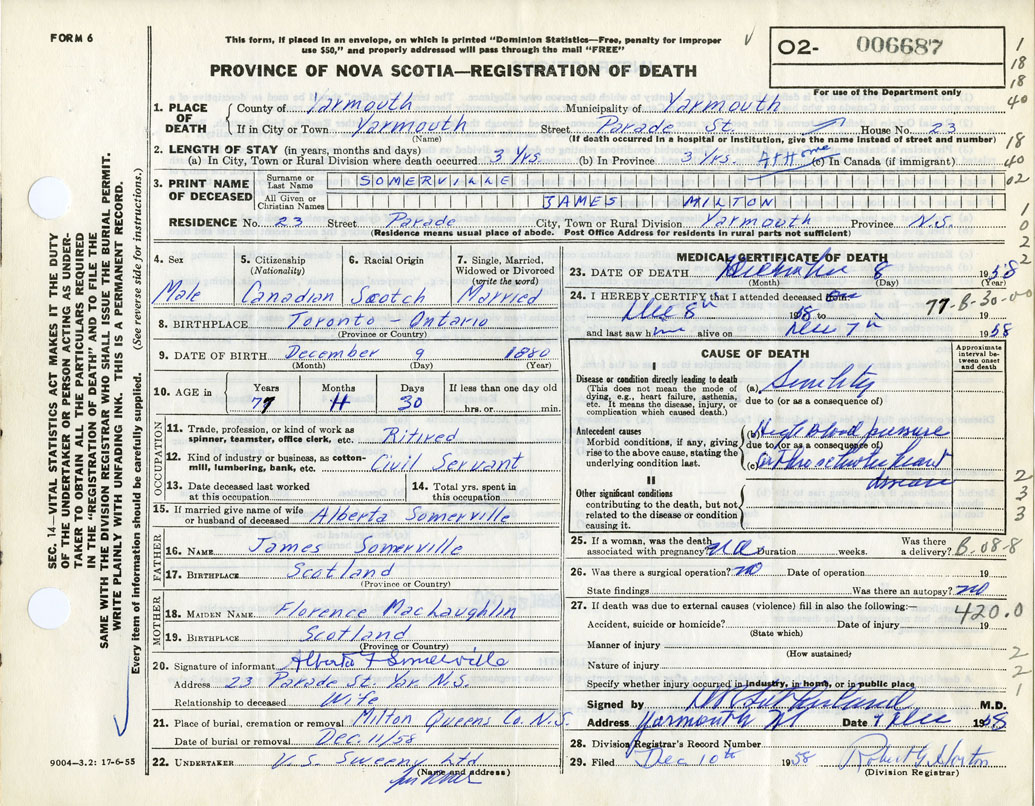 FORM 6
This form, if placed in an envelope, on which is printed "Dominion Statistics—Free, penalty for improper
use $50," and properly addressed will pass through the mail "FREE"
PROVINCE OF NOVA SCOTIA—REGISTRATION OF DEATH
02- 006687
For use of the Department only
1
18
18
40
18
40
02
1
0
2
2
SEC. 14—VITAL STATISTICS ACT MAKES IT THE DUTY
OF THE UNDERTAKER OR PERSON ACTING AS UNDER-
TAKER TO OBTAIN ALL THE PARTICULARS REQUIRED
IN THE "REGISTRATION OF DEATH" AND TO FILE THE
SAME WITH THE DIVISION REGISTRAR WHO SHALL ISSUE THE BURIAL PERMIT.
WRITE PLAINLY WITH UNFADING INK. THIS IS A PERMANENT RECORD.
Every item of information should be carefully supplied. (See reverse side for instructions.)
1. PLACE OF DEATH
County of Yarmouth Municipality of Yarmouth
If in City or Town Yarmouth Street Parade St. House No. 23
(Name) (If death occurred in a hospital or institution, give the name instead of street and number)
2. LENGTH OF STAY (in years, months and days)
(a) In City, Town or Rural Division where death occurred 3 Yrs. (b) In Province 3 Yrs. At Home (c) In Canada (if immigrant)
3. PRINT NAME OF DECEASED
Surname or Last Name SOMERVILLE
All Given or Christian Names JAMES MILTON
RESIDENCE No. 23 Street Parade City, Town or Rural Division Yarmouth Province N.S.
(Residence means usual place of abode. Post Office Address for residents in rural parts not sufficient)
4. Sex
Male
5. Citizenship
(Nationality)
Canadian
6. Racial Origin
Scotch
7. Single, Married,
Widowed or Divorced
(write the word)
Married
8. BIRTHPLACE Toronto - Ontario
(Province or Country)
9. DATE OF BIRTH December 9 1880
(Month) (Day) (Year)
10. AGE in
Years 77
Months 11
Days 30
If less than one day old
hrs. or min.
OCCUPATION
11. Trade, profession, or kind of work as
spinner, teamster, office clerk, etc. Ritired
12. Kind of industry or business, as cotton-
mill, lumbering, bank, etc. Civil Servant
13. Date deceased last worked
at this occupation
14. Total yrs. spent in
this occupation
15. If married give name of wife
or husband of deceased Alberta Somerville
FATHER
16. NAME James Somerville
17. BIRTHPLACE Scotland
(Province or Country)
MOTHER
18. MAIDEN NAME Florence MacLaughlin
19. BIRTHPLACE Scotland
(Province or Country)
20. Signature of informant Alberta F Somerville
Address 23 Parade St. Yar. N.S.
Relationship to deceased Wife
21. Place of burial, cremation or removal Milton Queens Co. N.S.
Date of burial or removal Dec. 11/58
22. UNDERTAKER V. S. Sweeny Ltd
(Name and address)
9004—3.2: 17-6-55
MEDICAL CERTIFICATE OF DEATH
23. DATE OF DEATH December 8 1958
(Month) (Day) (Year)
24. I HEREBY CERTIFY that I attended deceased from
Dec 8th 1958 to 19
77-B-30-00
and last saw him alive on Dec 7th 1958
CAUSE OF DEATH
Approximate
interval be-
tween onset
and death
I
Disease or condition directly leading to death
(This does not mean the mode of
dying, e.g., heart failure, asthenia,
etc. It means the disease, injury, or
complication which caused death.)
(a) Senility
due to (or as a consequence of)
Antecedent causes
Morbid conditions, if any, giving
rise to the above cause, stating the
underlying condition last.
(b) High blood pressure
due to (or as a consequence of)
(c) arteriosclerotic heart
disease
II
Other significant conditions
contributing to the death, but not
related to the disease or condition
causing it.
2
3
3
3
25. If a woman, was the death
associated with pregnancy? no Duration weeks. Was there
a delivery? B-08-8
26. Was there a surgical operation? no Date of operation 19
State findings Was there an autopsy? no
27. If death was due to external causes (violence) fill in also the following:—
420.0
Accident, suicide or homicide? Date of injury 19
(State which)
Manner of injury
(How sustained)
Nature of injury
2
2
1
Specify whether injury occurred in industry, in home, or in public place
Signed by M.D.
Address Yarmouth NS Date 9 Dec 1958
28. Division Registrar's Record Number
29. Filed Dec 10th 1958 Robert G Horton
(Division Registrar)